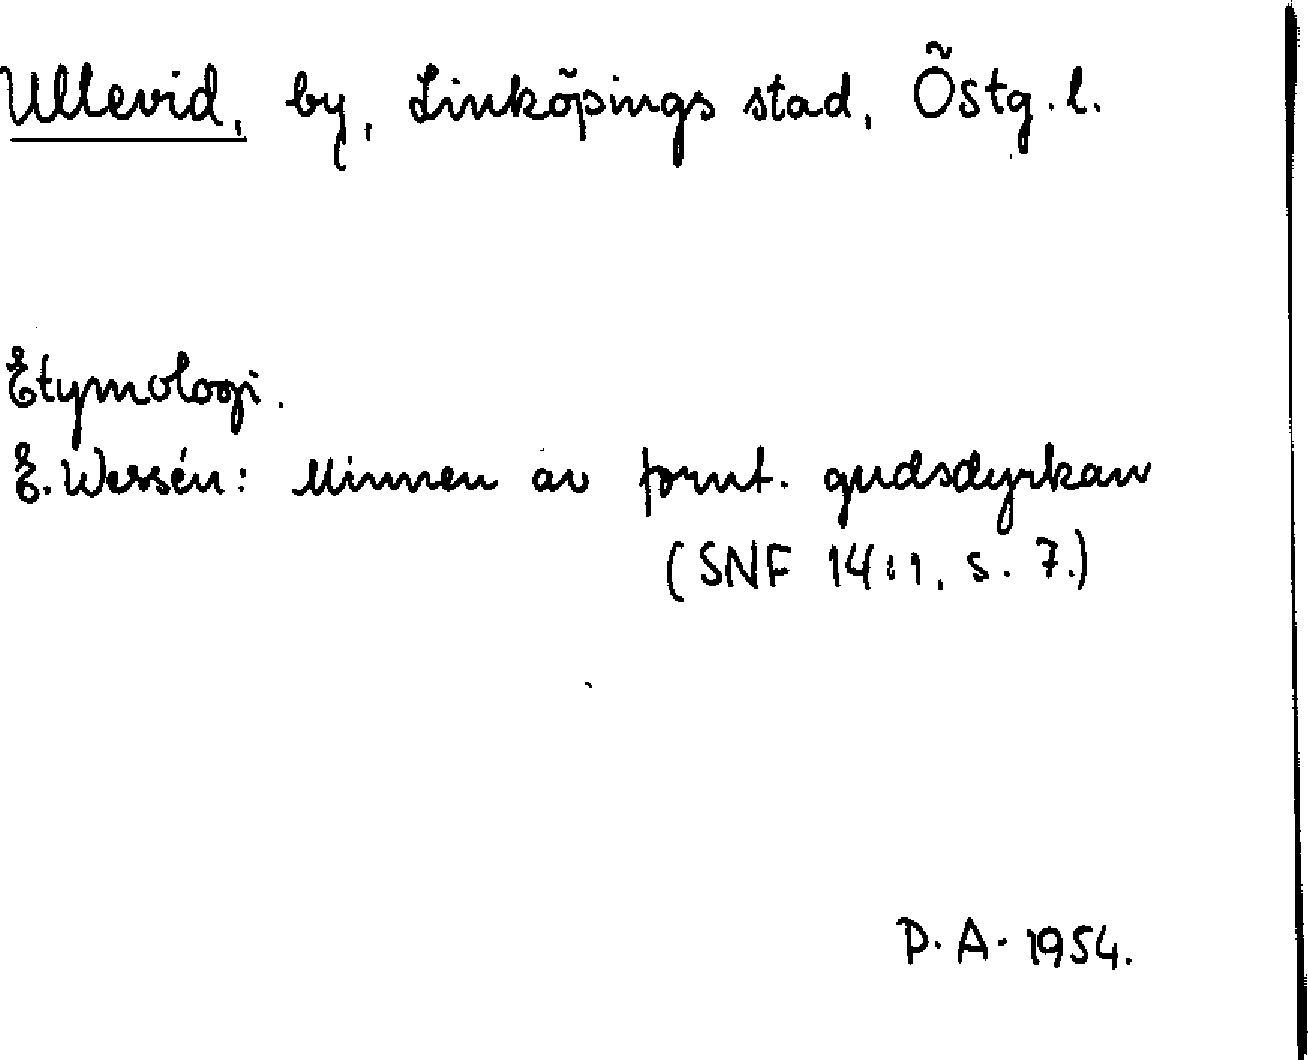 Ullevid, by, Linköpings stad, Östg.l.
Etymologi.
E. Wessén: Minnen av fornt. gudsdyrkan
(SNF 14:1, s. 7.)
P.A. 1954.